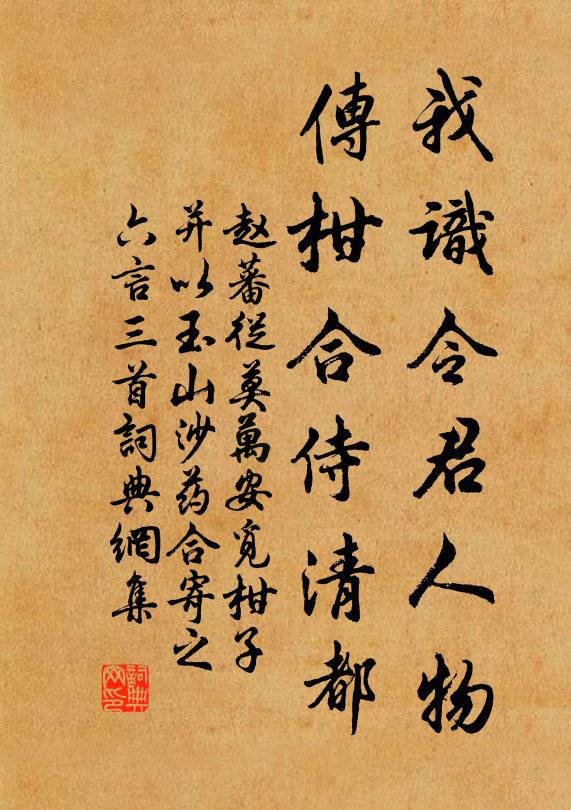 我識令君人物
傳柑合侍清都
赵蕃從莫萬安覓柑子
并以玉山沙药合寄之
六言三首詞典網集
詞典网印